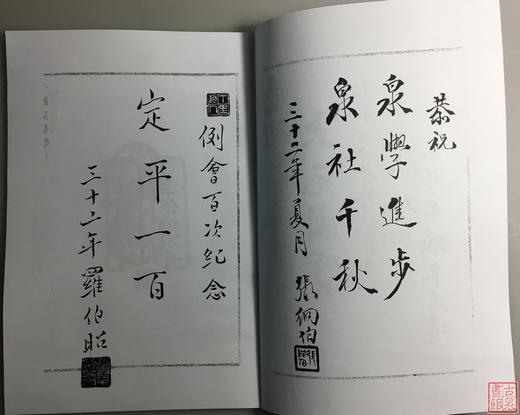 恭祝
泉學進步
泉社千秋
三十二年夏月 張絅伯
例會百次紀念
定平一百
三十二年 羅伯昭
古泉書館